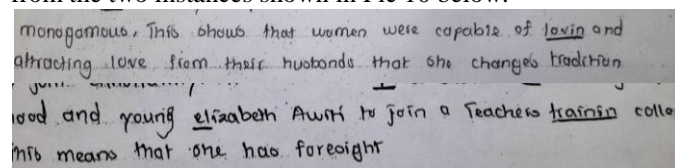 from the two instances shown in Pic 10 below.
monogamous. This shows that women were capable of lovin and
attracting love from their husbands that she changes tradition
ood and young elizabeth Awiti to join a Teachers trainin colle
his means that one has foresight